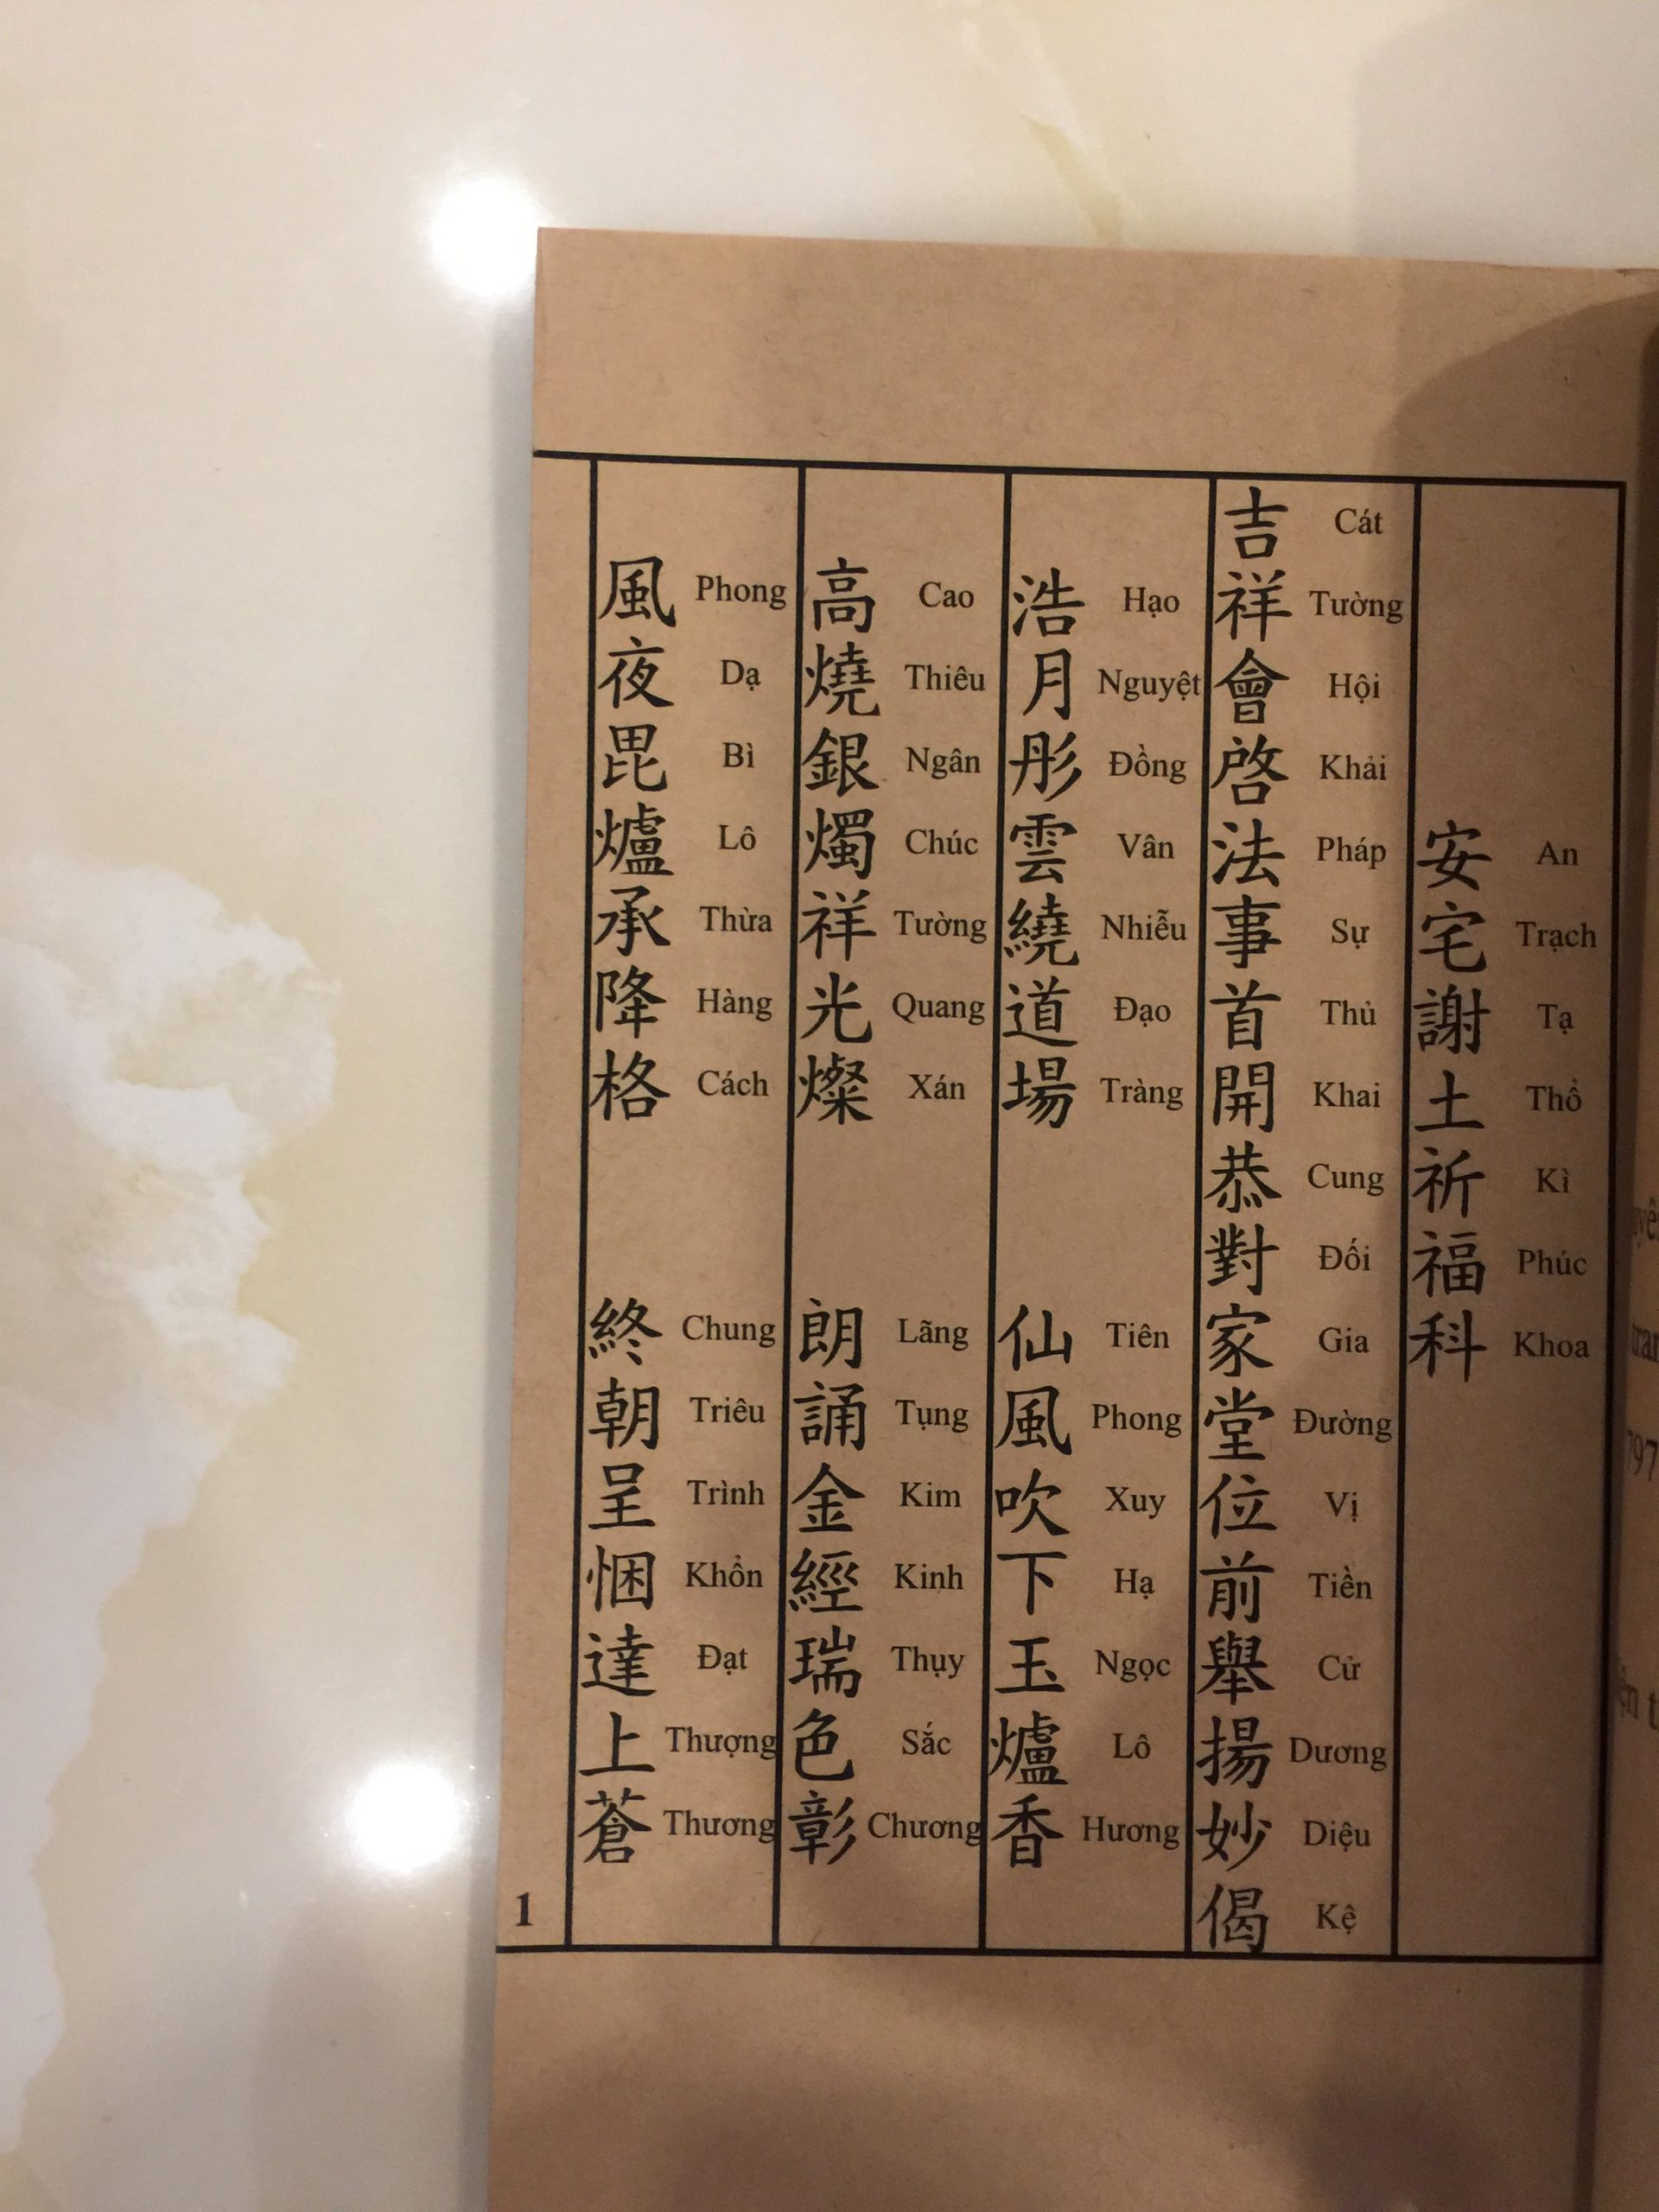 安宅謝土祈福科
An Trạch Tạ Thổ Kì Phúc Khoa
吉祥會啓法事首開恭對家堂位前舉揚妙偈
Cát Tường Hội Khải Pháp Sự Thủ Khai Cung Đối Gia Đường Vị Tiền Cử Dương Diệu Kệ
浩月彤雲繞道場 仙風吹下玉爐香
Hạo Nguyệt Đồng Vân Nhiễu Đạo Tràng Tiên Phong Xuy Hạ Ngọc Lô Hương
高燒銀燭祥光燦 朗誦金經瑞色彰
Cao Thiêu Ngân Chúc Tường Quang Xán Lãng Tụng Kim Kinh Thụy Sắc Chương
風夜毘爐承降格 終朝呈悃達上蒼
Phong Dạ Bì Lô Thừa Hàng Cách Chung Triêu Trình Khổn Đạt Thượng Thương
1